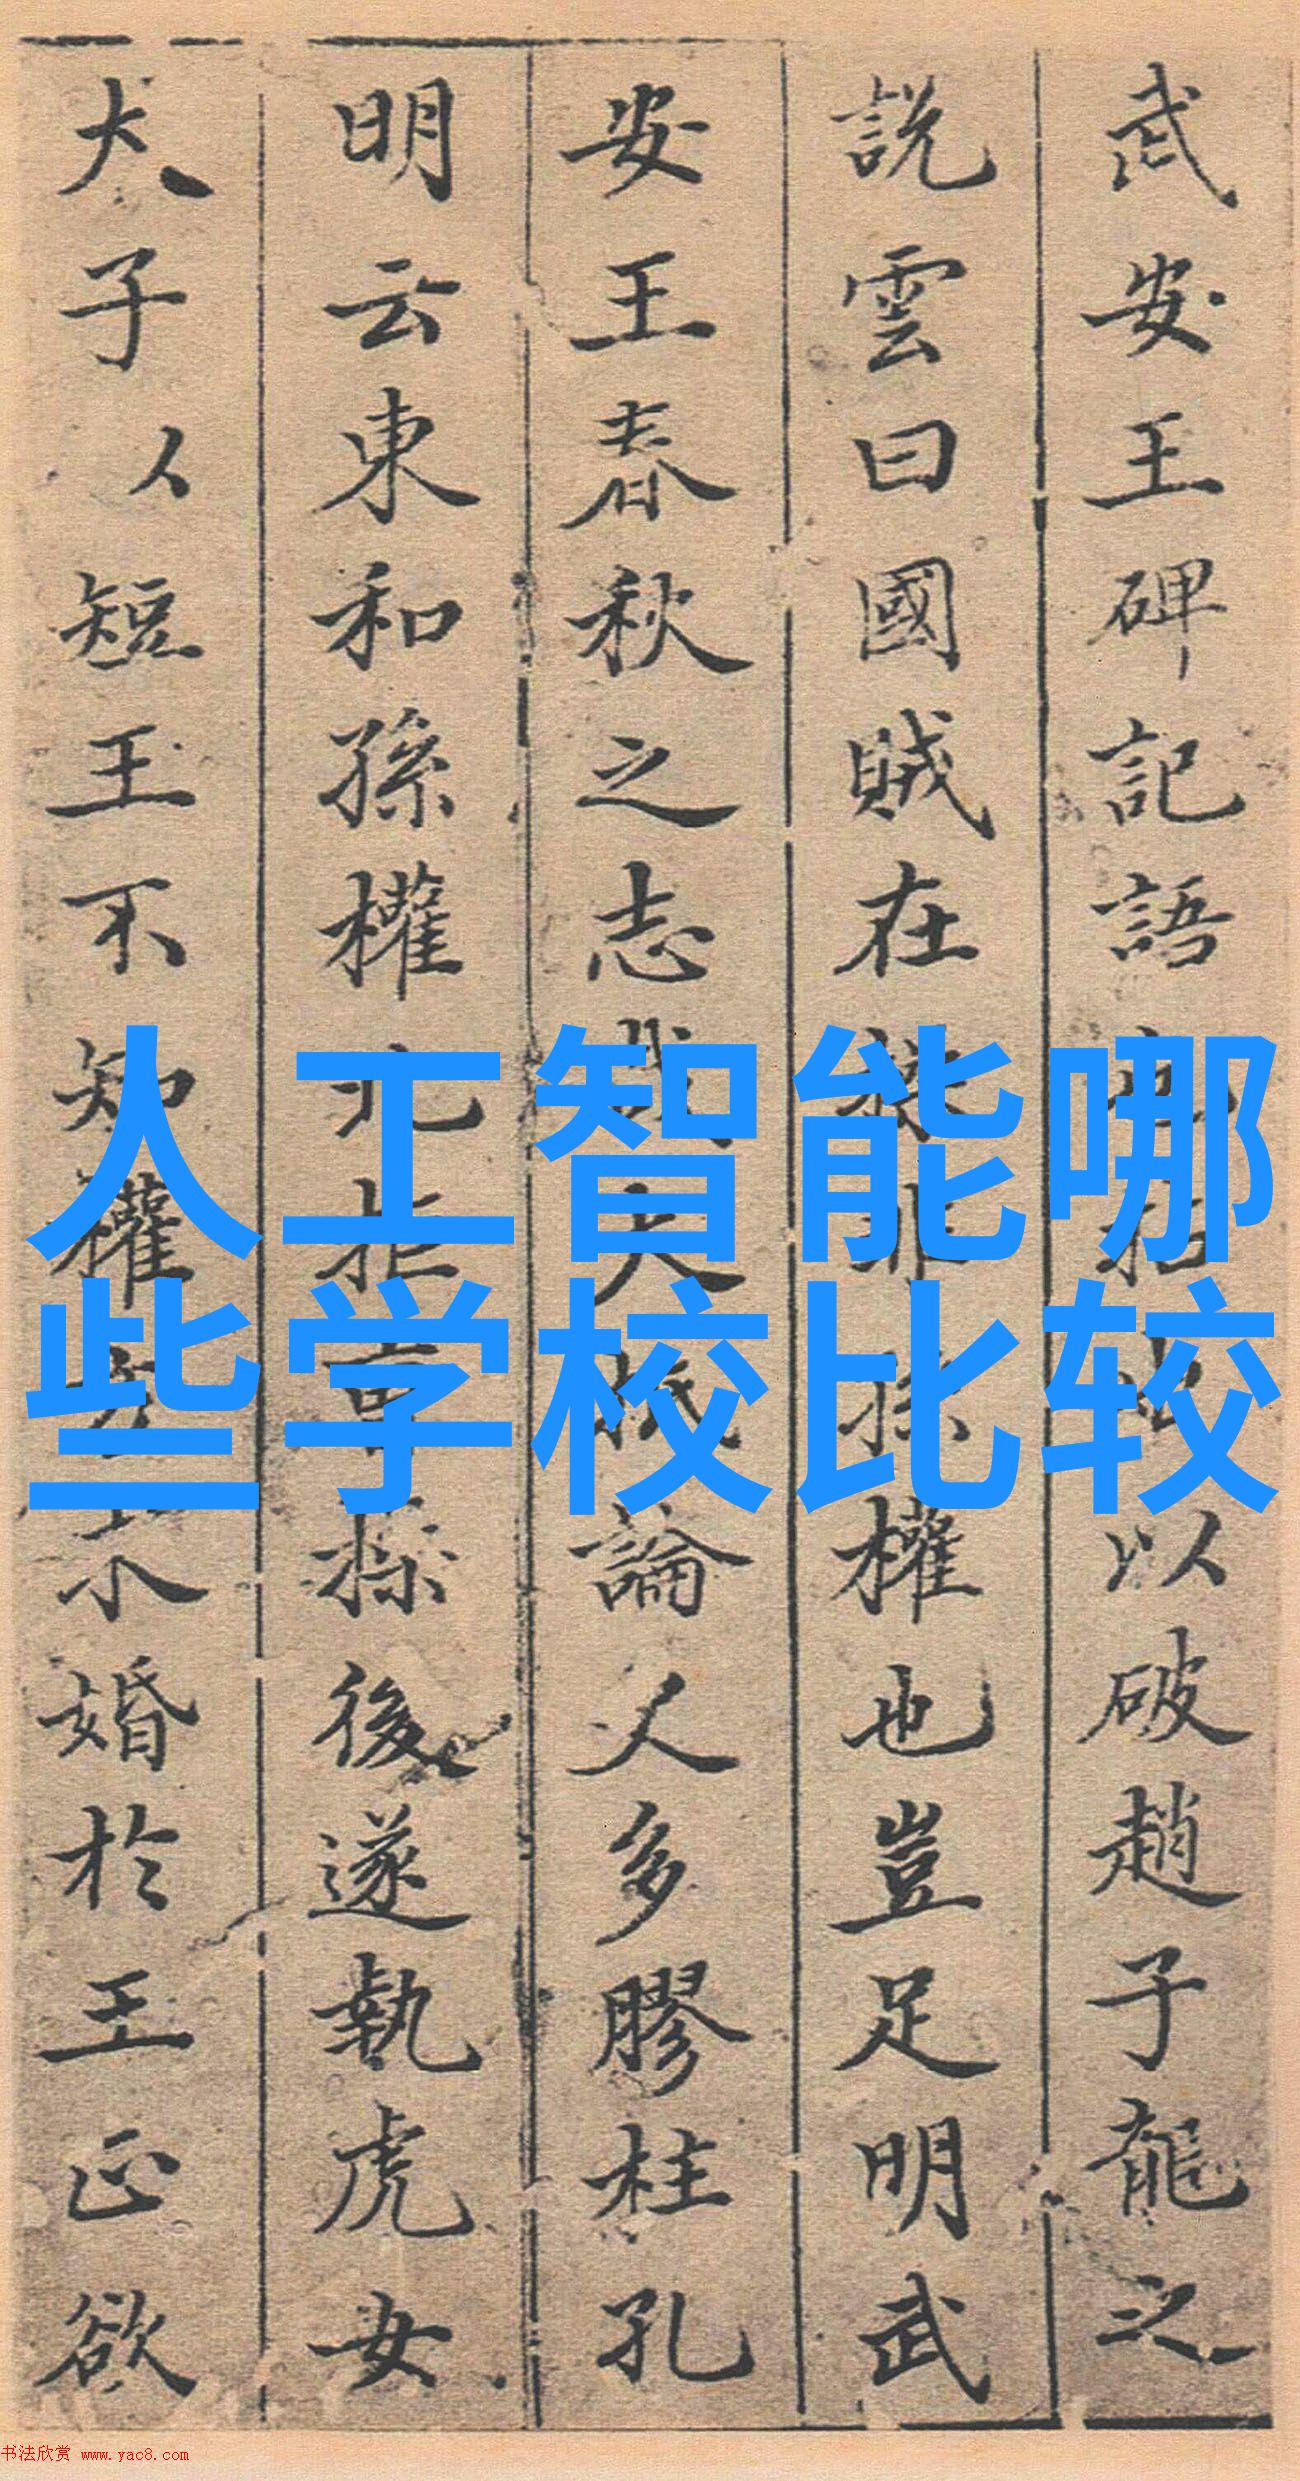 武安王碑記語以破趙子龍之
說雲曰國賊在操非孫權也豈足明武
安王春秋之志哉大抵論人多膠柱孔
明云東和孫權北拒曹操後遂執虎女
犬子以短王不知權方求婚於王正欲
人工智能哪
些学校比较
书法欣赏 www.yac8.com